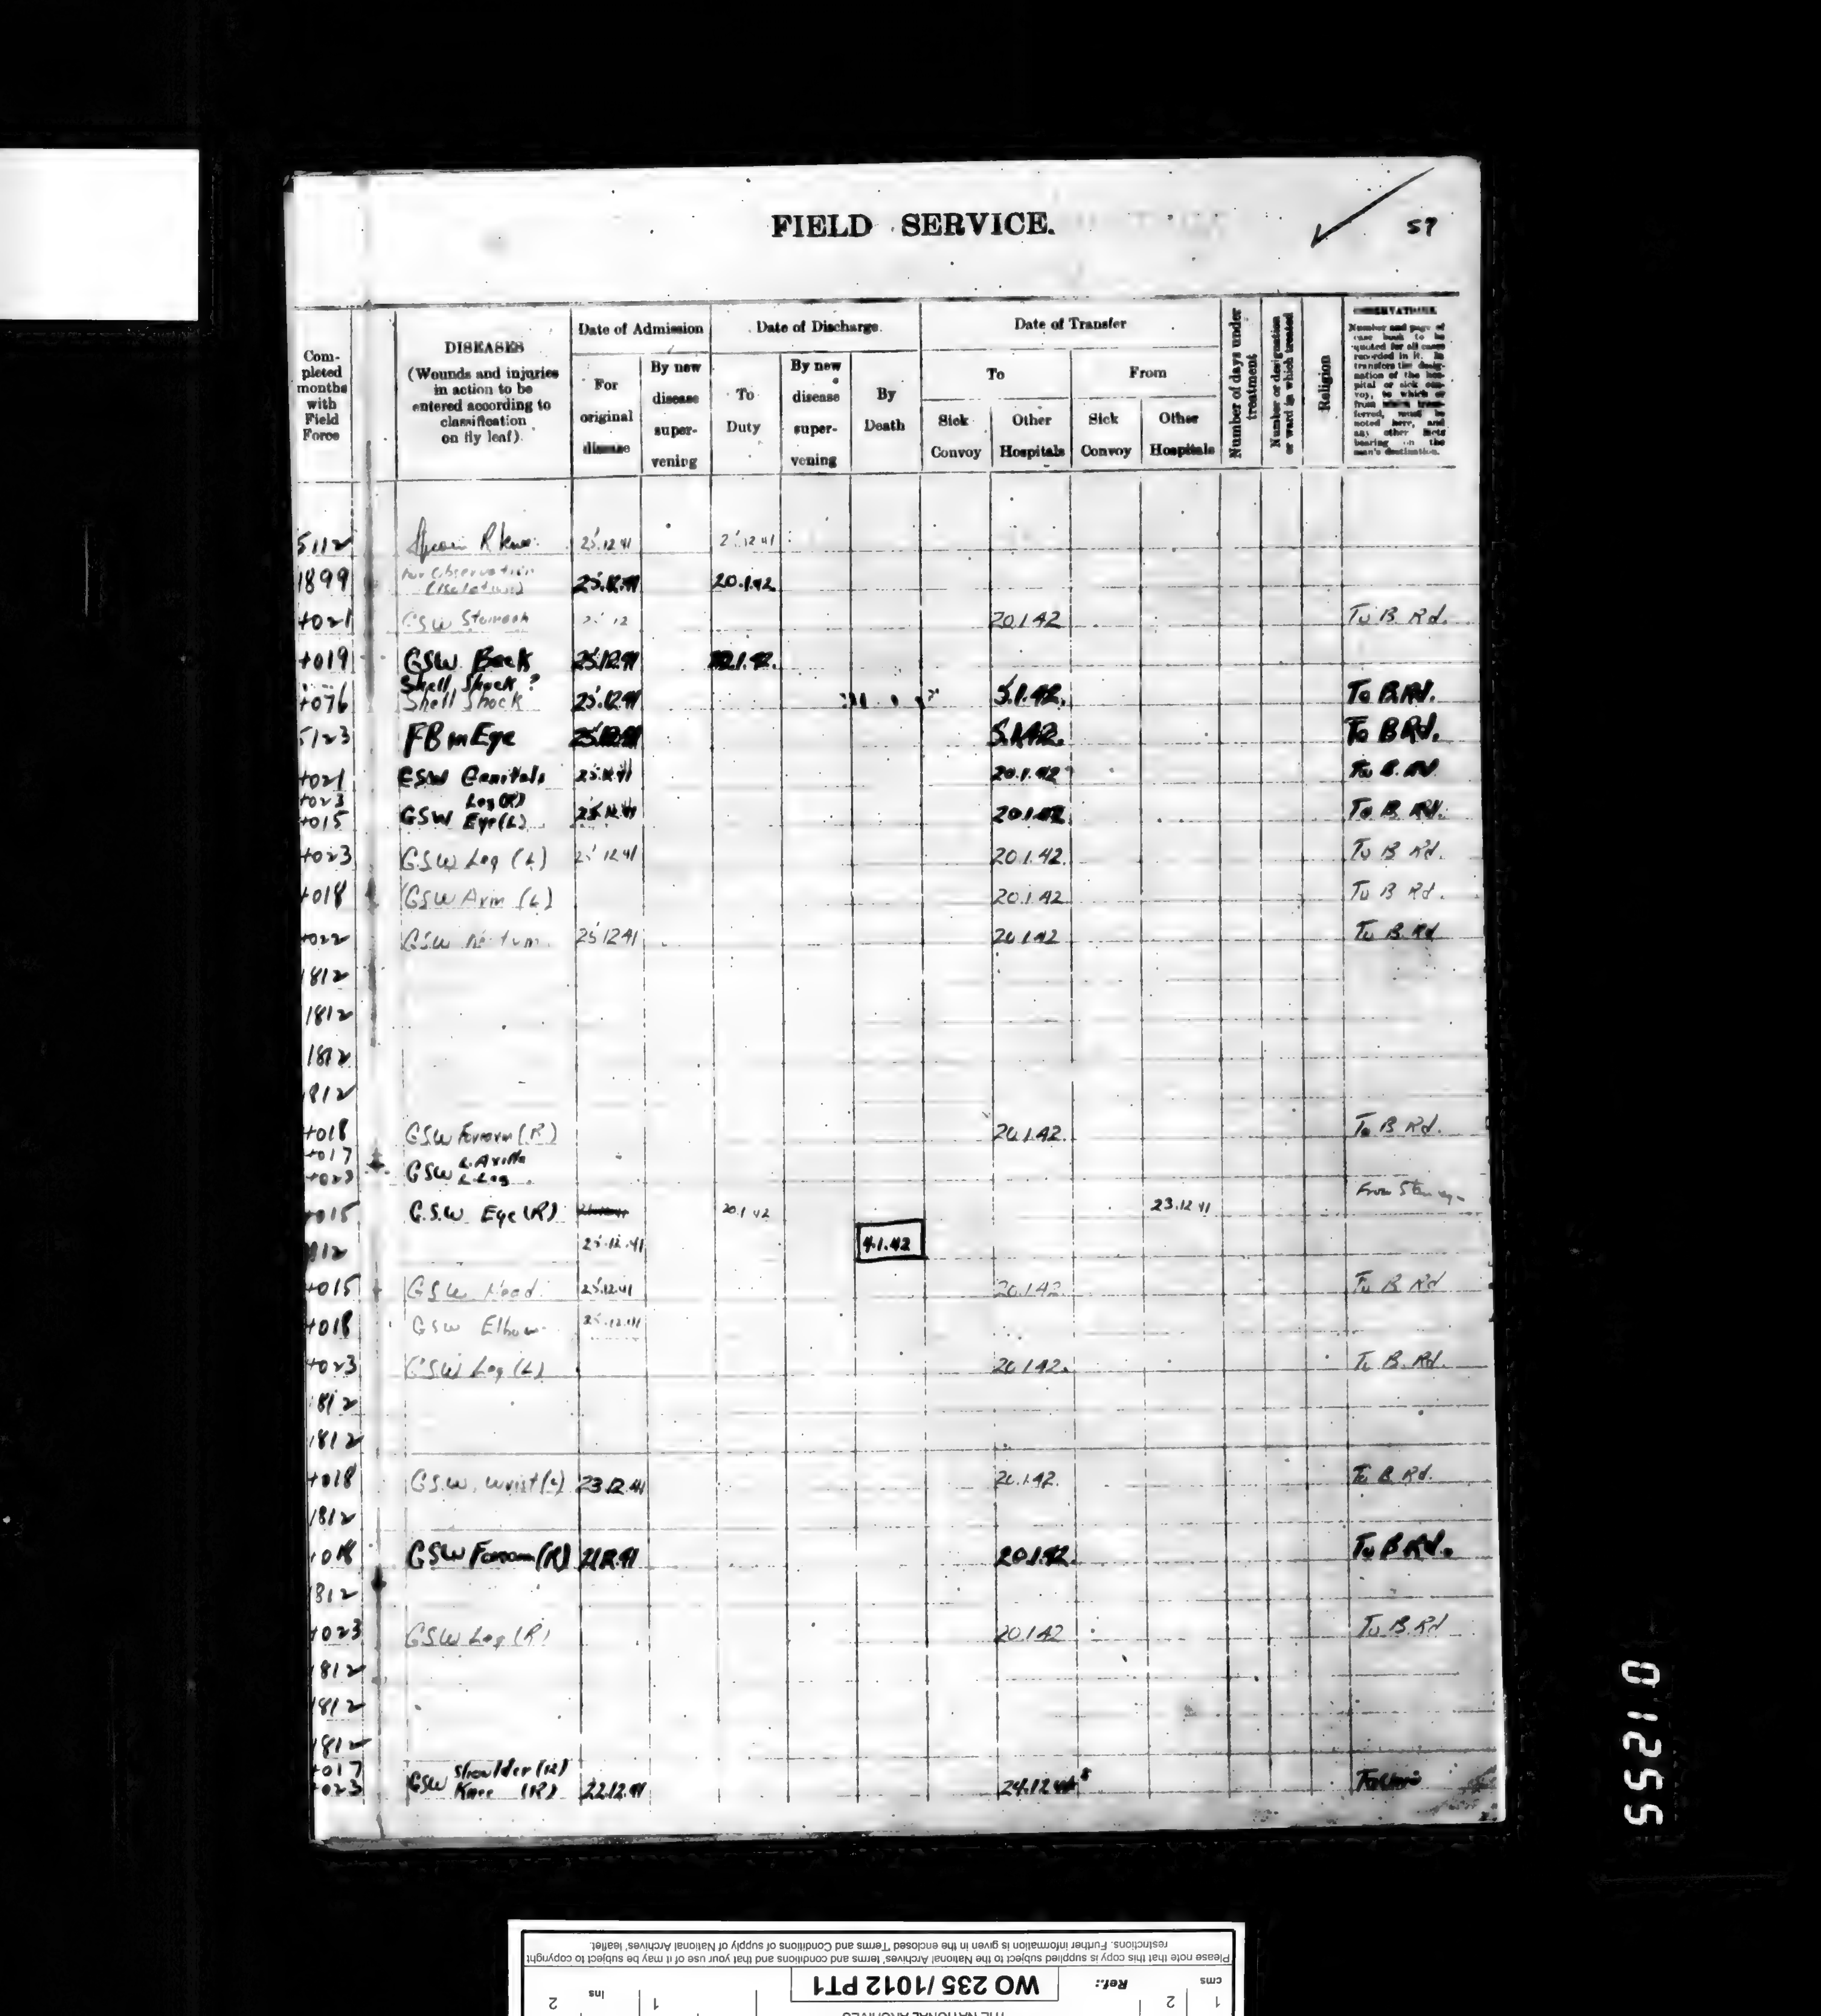 FIELD SERVICE.
57
Com-
pleted
months
with
Field
Force
DISEASES
(Wounds and injuries
in action to be
entered according to
classification
on fly leaf).
Date of Admission
For
original
disease
By new
disease
super-
vening
Date of Discharge.
To
Duty
By new
disease
super-
vening
By
Death
Date of Transfer
To
Sick
Convoy
Other
Hospitals
From
Sick
Convoy
Other
Hospitals
Number of days under
treatment
Number or designation
or ward in which treated
Religion
OBSERVATIONS.
Number and page of
case book to be
quoted for all cases
recorded in it. In
transfers the desig-
nation of the hos-
pital or sick con-
voy, to which or
from which trans-
ferred, must be
noted here, and
any other facts
bearing on the
man's destination.
5112 R Knee 25.12.41
1899 For Observation
(Isolation) 25.12.41 20.1.42
4021 GSW Stomach 25 12 20.1.42 To B. Rd.
4019 GSW Back 25.12.41
Shell Shock ?
4076 Shell Shock 25.12.41 5.1.42. To B.Rd.
5123 FB in Eye 25.12.41 5.1.42. To B Rd.
4021 GSW Genitals 25.12.41 20.1.42 To B. Rd
4023 Leg (R)
4015 GSW Eye (L) 25.12.41 20.1.42 To B Rd.
4023 GSW Leg (L) 25.12.41 20.1.42. To B Rd.
4018 GSW Arm (L) 20.1.42 To B Rd.
4022 GSW 25.12.41 20.1.42 To B. Rd
1812
1812
1812
1812
4018 GSW Forearm (R) 20.1.42. To B Rd.
4017 L. Axilla
4023 GSW L. Leg
4015 G.S.W Eye (R) 20.1.42 23.12.41 From Stanley
1812 25.12.41 4.1.42
4015 GSW Head 25.12.41 20.1.42. To B Rd
4018 GSW Elbow 25.12.41
4023 GSW Leg (L) 20.1.42. To B. Rd.
1812
1812
4018 G.S.W. Wrist (L) 23.12.41 20.1.42. To B Rd.
1812
4018 GSW Forearm (R) 21.12.41 20.1.42. To B Rd.
1812
4023 GSW Leg (R) 20.1.42 To B. Rd
1812
1812
1812
4017 Shoulder (R)
4023 GSW Knee (R) 22.12.41 24.12.41
015255
Please note that this copy is supplied subject to the National Archives' terms and conditions and that your use of it may be subject to copyright
restrictions. Further information is given in the enclosed 'Terms and Conditions of supply of National Archives' leaflet.
cms 1 2 Ref.: WO 235/1012 PT1 1 ins 2
THE NATIONAL ARCHIVES